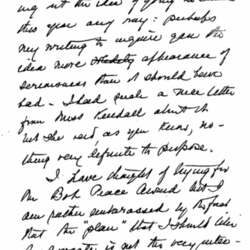 ing up the idea of going
this year any way: perhaps
my writing to inquire gave the
idea more appearance of
seriousness than it should have
had. I had quite a nice letter
from Miss Kendall about it
but she said as you know, no-
thing very definite to propose.
I have thought of trying for
the Bok Peace Award but I
am rather embarrassed by the fact
that the "plan" that I should like
is not the very